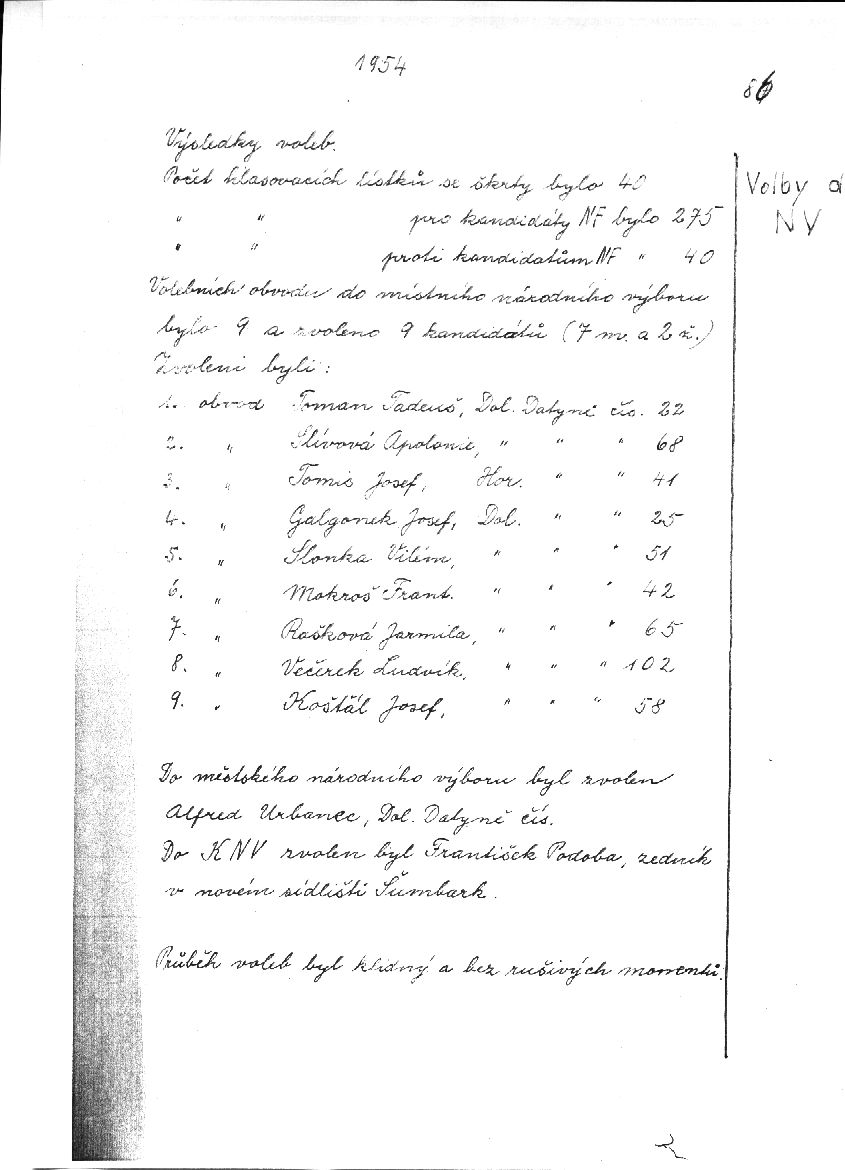 1954
86
Výsledky voleb.
Počet hlasovacích lístků se škrty bylo 40
" " pro kandidáty NF bylo 275
" " proti kandidatům NF " 40
Volebních obvodu do místního národního výboru
bylo 9 a zvoleno 9 kandidátů (7 m. a 2 ž.)
Zvoleni byli:
1. obvod Toman Tadeuš, Dol. Datyně čís. 22
2. " Slívová Apolonie, " " " 68
3. " Tomis Josef, Hor. " " 41
4. " Galgonek Josef, Dol. " " 25
5. " Slonka Vilém, " " " 51
6. " Mokroš Frant. " " " 42
7. " Rašková Jarmila, " " " 65
8. " Večerek Ludvík, " " " 102
9. " Košťál Josef, " " " 58
Do městského národního výboru byl zvolen
Alfred Urbanec, Dol. Datyně čís.
Do KNV zvolen byl František Podoba, zedník
v novém sídlišti Šumbark.
Průběh voleb byl klidný a bez rušivých momentů.
Volby d
NV